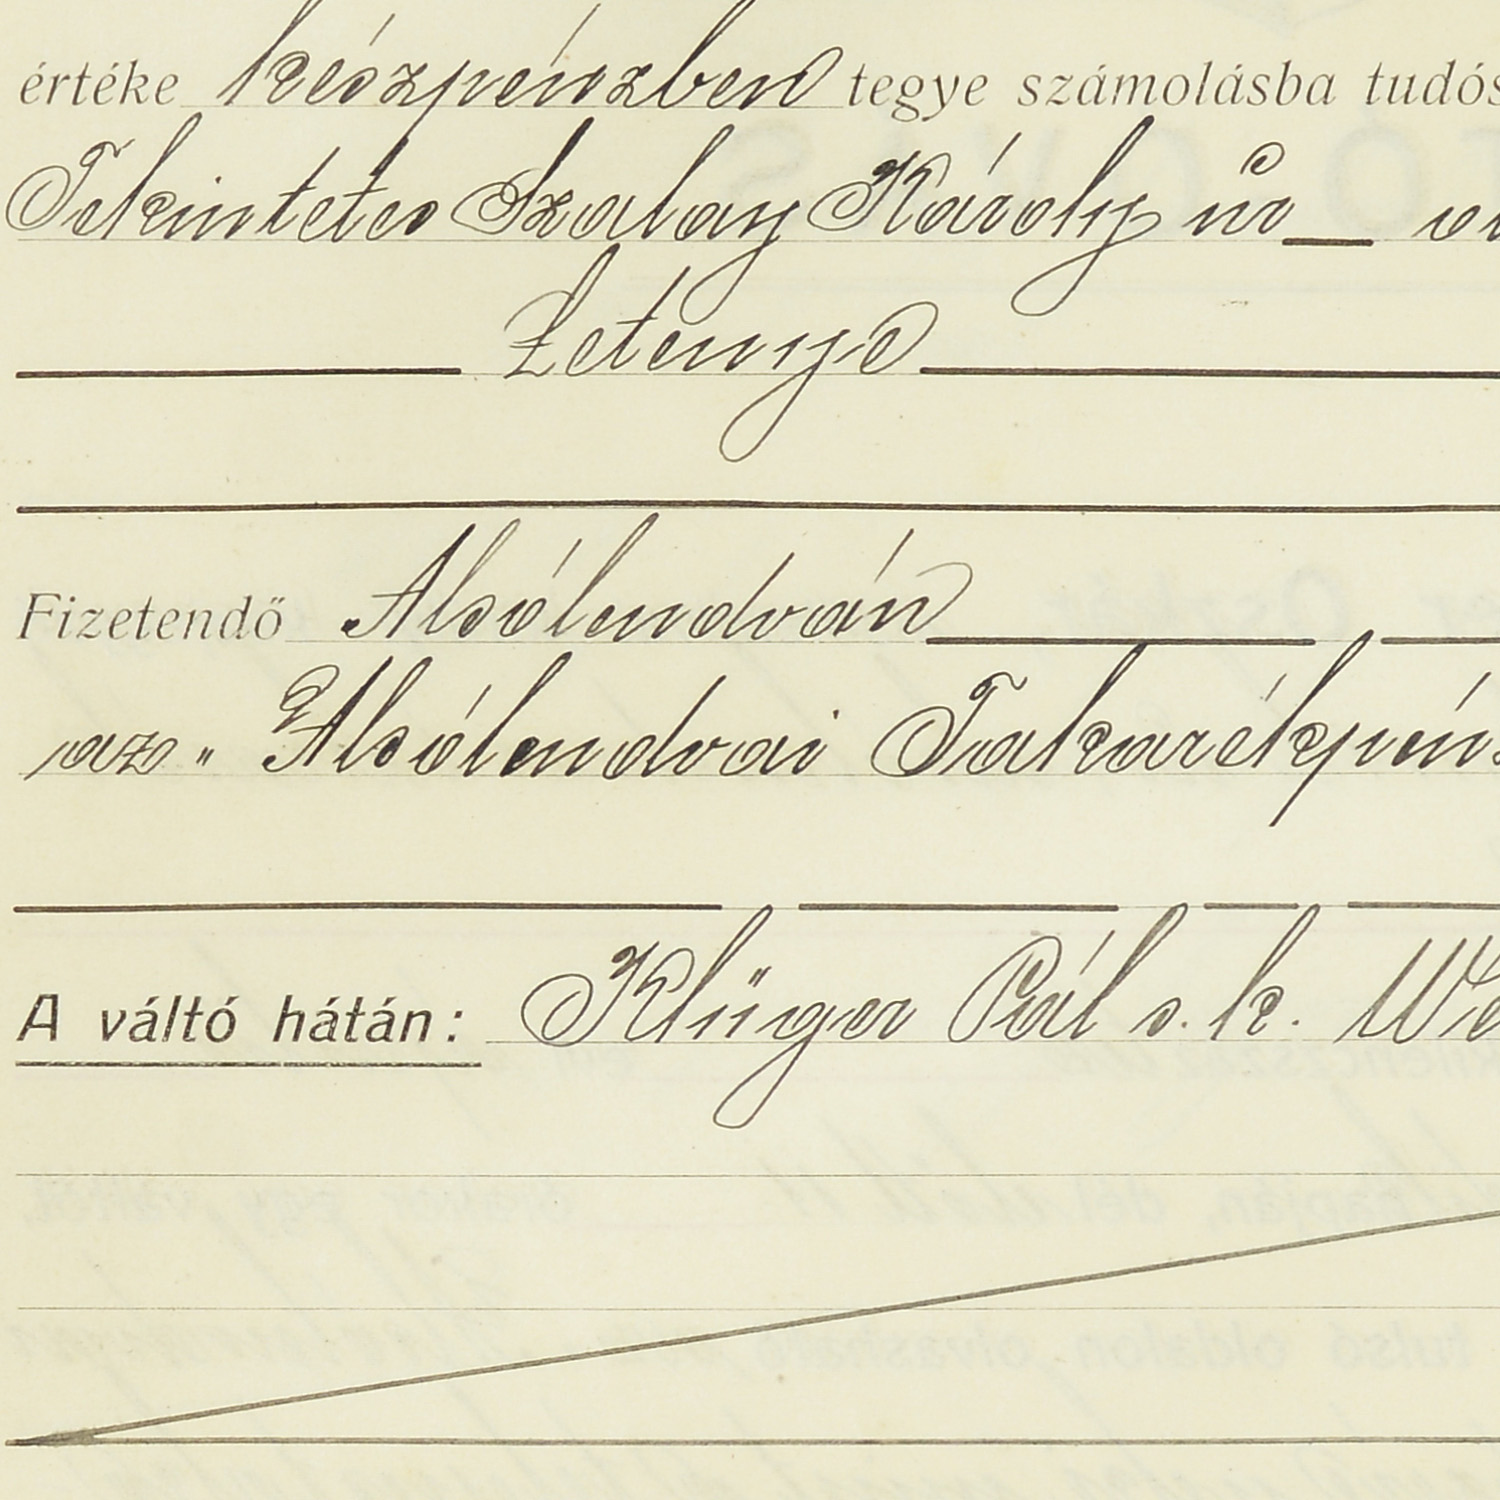 értéke készpénzben tegye számolásba tudós
Tekintetes Szalay Károly úr
Letenye
Fizetendő Alsólendván
az „Alsólendvai Takarékpénz
A váltó hátán: Klüger Pál s. k. We